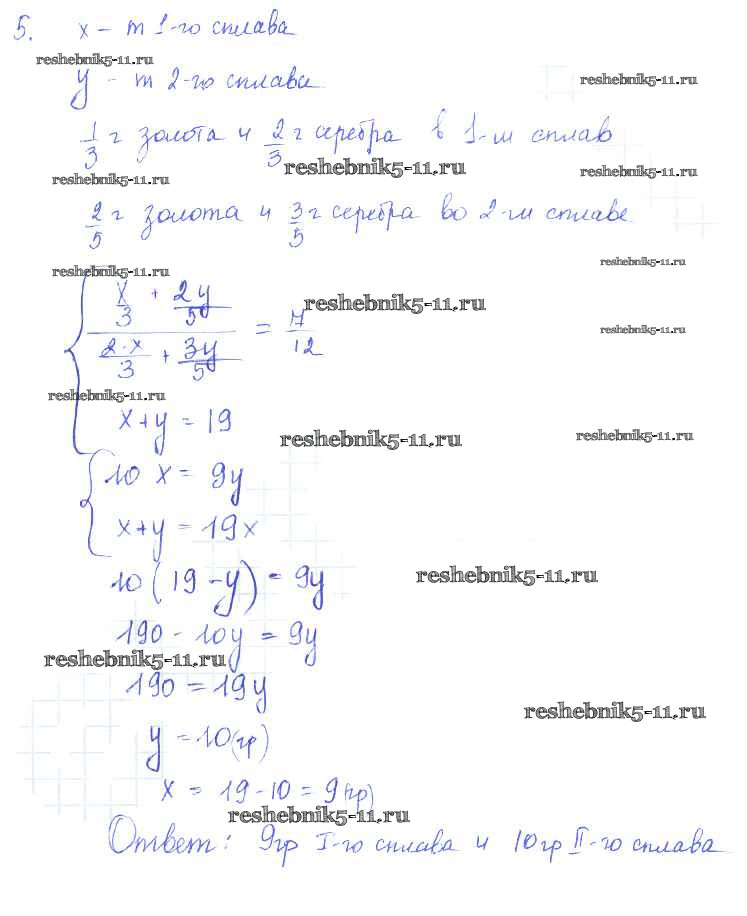 5. x – m 1-го сплава
reshebnik5-11.ru
y – m 2-го сплава
reshebnik5-11.ru
1/3 г золота и 2/3 г серебра в 1-м сплав
reshebnik5-11.ru
reshebnik5-11.ru
reshebnik5-11.ru
2/5 г золота и 3/5 г серебра во 2-м сплаве
reshebnik5-11.ru
reshebnik5-11.ru
(x/3 + 2y/5) / (2·x/3 + 3y/5) = 7/12
reshebnik5-11.ru
reshebnik5-11.ru
reshebnik5-11.ru
x+y = 19
reshebnik5-11.ru
reshebnik5-11.ru
10 x = 9y
x+y = 19x
10(19-y) = 9y
reshebnik5-11.ru
190 - 10y = 9y
reshebnik5-11.ru
190 = 19y
reshebnik5-11.ru
y = 10(гр)
x = 19-10 = 9(гр)
reshebnik5-11.ru
Ответ: 9гр I-го сплава и 10гр II-го сплава